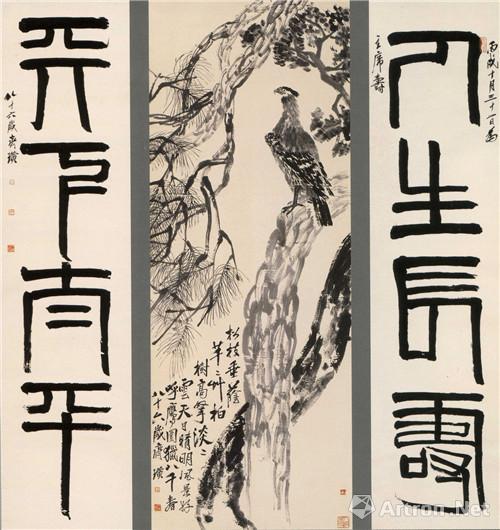 人生長壽
丙戌十月三十一日為
主席壽
松枝垂蔭
芊々艸柏
樹高擎淡々
雲天日晴明風景好
呼鷹圍獵八千春
八十六歲齊璜
天下太平
八十六歲齊璜
Artron.Net